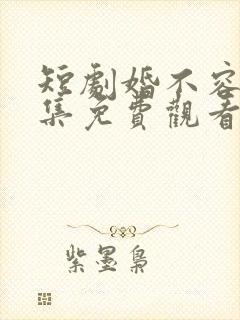 短劇婚不容
集免費觀看
紫墨梟